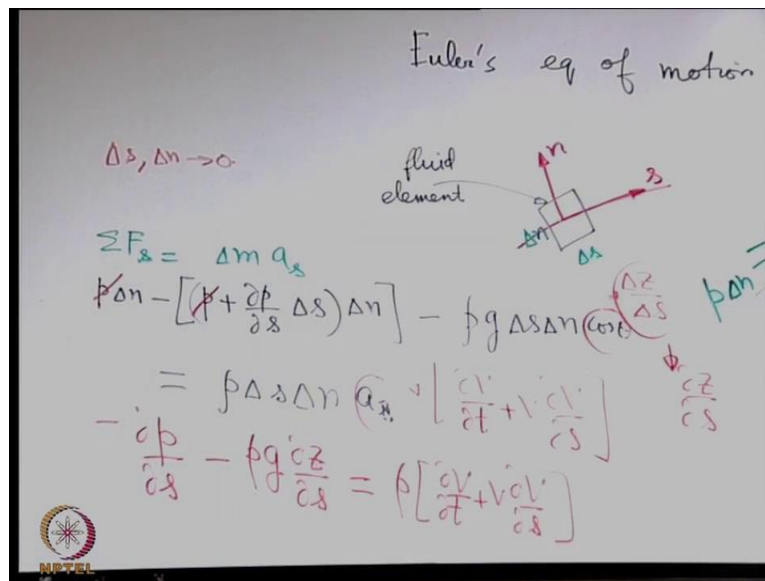 Euler's eq of motion
Δs, Δn → 0
fluid element
n
s
Δn
Δs
ΣF_s = Δm a_s
pΔn − [(p + ∂p/∂s Δs)Δn] − ρgΔsΔn cosθ Δz/Δs
pΔn =
= ρΔsΔn a_s [∂V/∂t + V ∂V/∂s]
∂z/∂s
− ∂p/∂s − ρg ∂z/∂s = ρ[∂V/∂t + V ∂V/∂s]
NPTEL